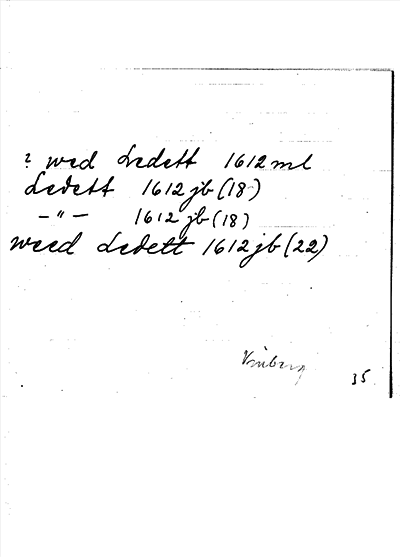 ? wed Ledett 1612 ml
Ledett 1612 jb (18)
–"– 1612 jb (18)
weed Ledett 1612 jb (22)
Vinberg
35